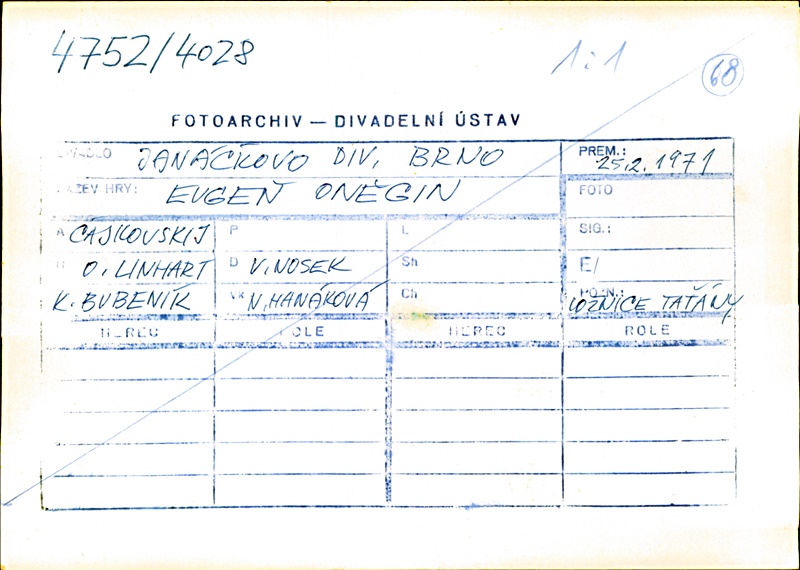 4752/4028
1:1
68
FOTOARCHIV — DIVADELNÍ ÚSTAV
DIVADLO JANÁČKOVO DIV, BRNO
PREM.: 25.2.1971
NÁZEV HRY: EVGEŇ ONĚGIN
FOTO
A ČAJKOVSKIJ P L SIG.:
O. LINHART D V. NOSEK Sh E/
K. BUBENÍK VK N. HANÁKOVÁ Ch POZN.: LOŽNICE TAŤÁNY
HEREC ROLE HEREC ROLE